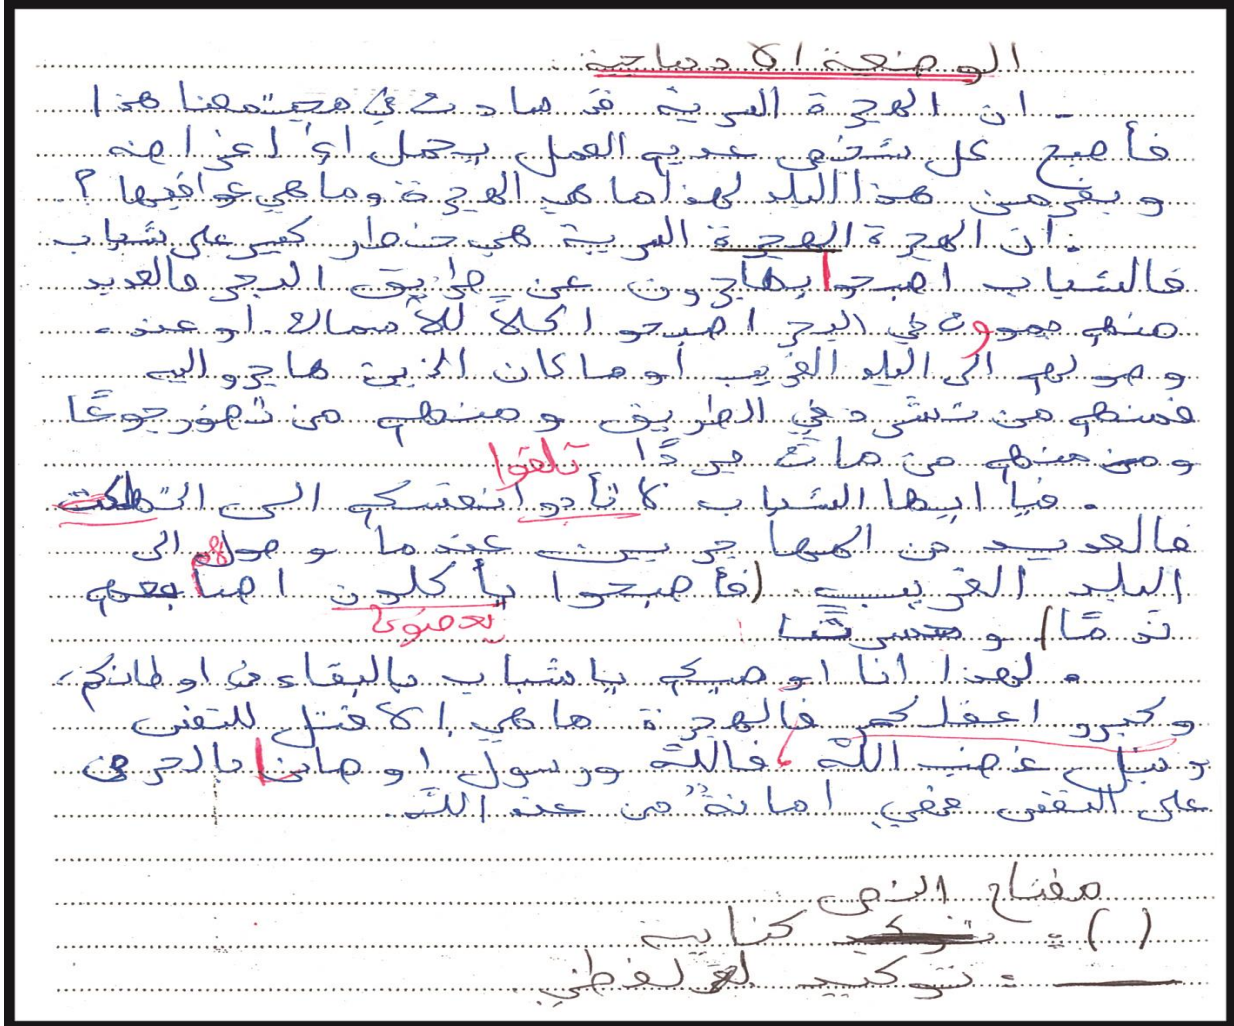 الوضعية الادماجية:
- ان الهجرة السرية قد سادت في مجتمعنا هذا
فأصبح كل شخص عديم العمل يحمل اي اغراضه
و يفر من هذا البلد لهذا ما هي الهجرة وما هي عواقبها ؟
. ان الهجرة الهجرة السرية هي خطر كبير على شباب
فالشباب اصبحوا يهاجرون عن طريق البحر فالعديد
منهم يموت في البحر اصبحو اكلاً للأسماك. او عند
وصولهم الى البلد الغريب أو مكان الذين هاجرو اليه
فمنهم من تشرد في الطريق و منهم من تضور جوعًا
و من منهم من مات بردًا
تلقوا
. فيا ايها الشباب لا تأدو انفسكم الى التهلكت
فالعديد من المهاجرين عندما وصول الى
البلد الغريب (فأصبحوا يأكلون اصابعهم
يعضون
ندمًا) و حسرتًا
. لهذا انا اوصيكم يا شباب بالبقاء في اوطانكم،
وكبرو اعقلكم فالهجرة ما هي إلا قتل للنفس
ونيل غضب الله ، فالله ورسول اوصانا بالحرص
على النفس فهي امانة من عند الله.
مفتاح النص
( ) = كناية
ـــــ = توكيد لفظي